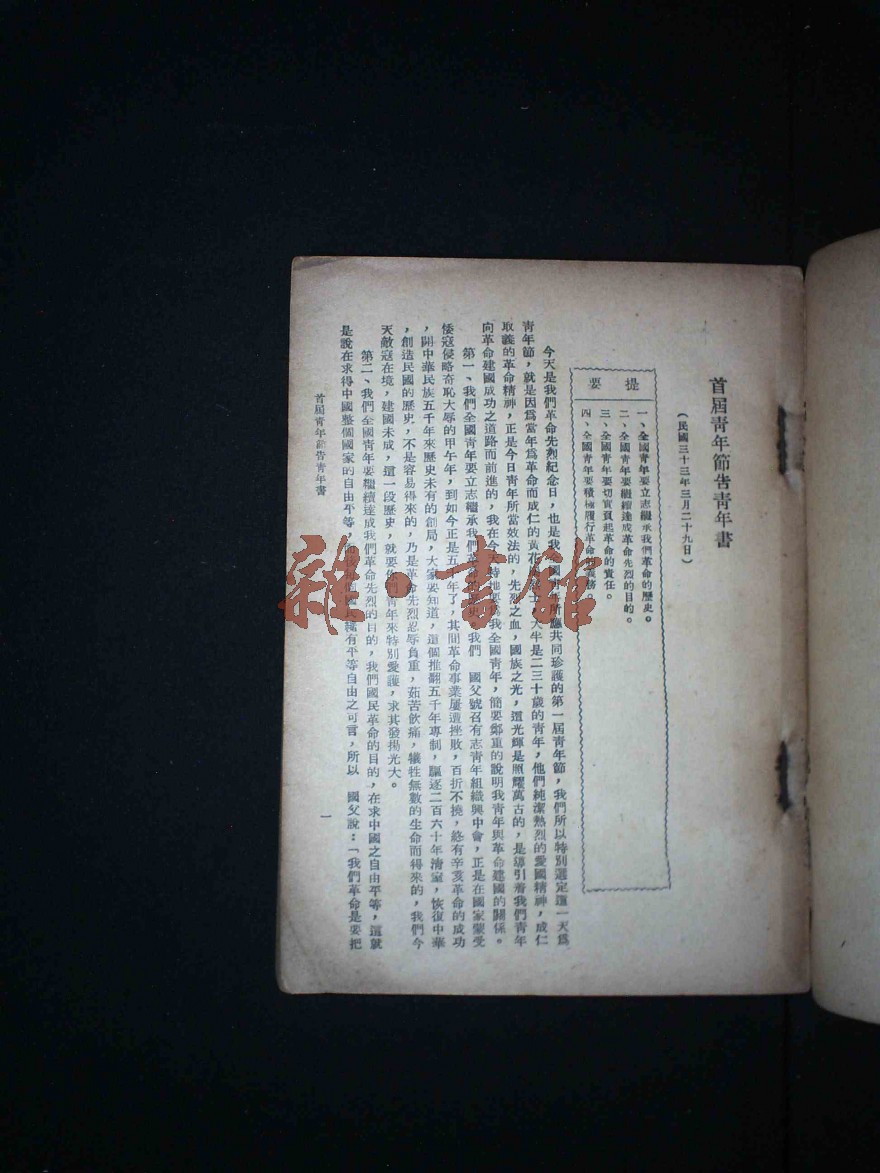 首屆靑年節吿靑年書
（民國三十三年三月二十九日）
提要
一、全國青年要立志繼承我們革命的歷史。
二、全國青年要繼續達成革命先烈的目的。
三、全國青年要切實負起革命的責任。
四、全國青年要積極履行革命的義務。
今天是我們革命先烈紀念日，也是我全國青年所應共同珍護的第一屆青年節，我們所以特別選定這一天爲
青年節，就是因爲當年爲革命而成仁的黃花岡烈士，大半是二三十歲的青年，他們純潔熱烈的愛國精神，成仁
取義的革命精神，正是今日青年所當效法的，先烈之血，國族之光，這光輝是照耀萬古的，是導引着我們青年
向革命建國成功之道路而前進的，我在今天特地要爲我全國青年，簡要鄭重的說明我青年與革命建國的關係。
第一、我們全國青年要立志繼承我們革命的歷史，我們　國父號召有志青年組織興中會，正是在國家蒙受
倭寇侵略奇恥大辱的甲午年，到如今正是五十年了，其間革命事業屢遭挫敗，百折不撓，終有辛亥革命的成功
，開中華民族五千年來歷史未有的創局，大家要知道，這個推翻五千年專制，驅逐二百六十年清室，恢復中華
，創造民國的歷史，不是容易得來的，乃是革命先烈忍辱負重，茹苦飲痛，犧牲無數的生命而得來的，我們今
天敵寇在境，建國未成，這一段歷史，就要你們青年來特別愛護，求其發揚光大。
第二、我們全國青年要繼續達成我們革命先烈的目的，我們國民革命的目的，在求中國之自由平等，這就
是說在求得中國整個國家的自由平等，而後我們國民纔有平等自由之可言，所以　國父說：「我們革命是要把
首屆青年節告青年書
一
雜·書館